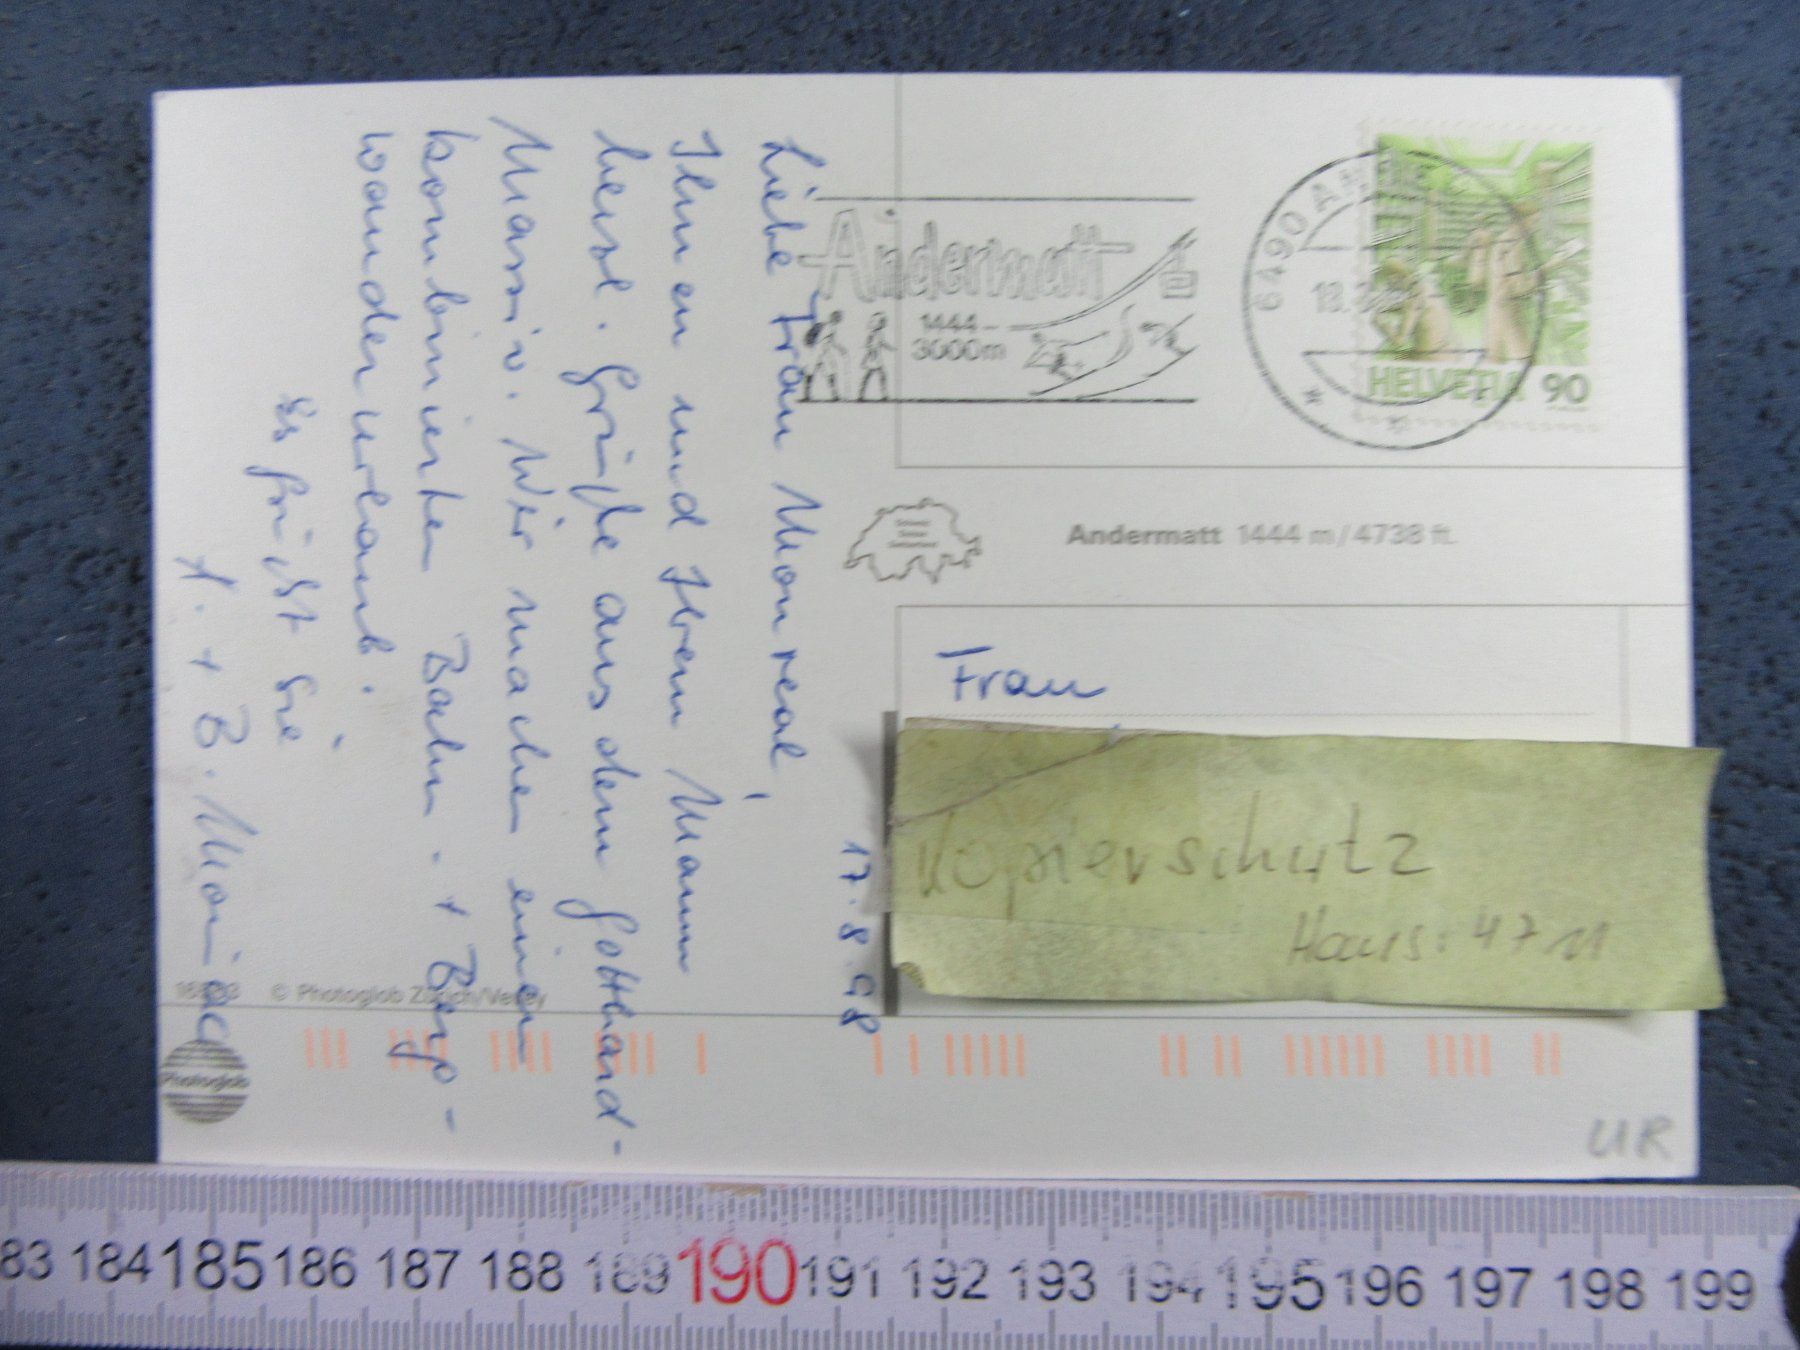 17.8.98
Liebe Frau Monreal,
Ihnen und Ihrem Mann
herzl. Grüße aus dem Gotthard-
Massiv. Wir machen einen
kombinierten Bahn- + Berg-
wanderurlaub.
Es grüßt Sie
A. + B.
Andermatt
1444-
3000m
6490
18.
HELVETIA 90
Andermatt 1444 m/4738 ft.
Frau
Kopierschutz
Haus: 4711
© Photoglob Zürich/Vevey
Photoglob
UR
83 184 185 186 187 188 189 190 191 192 193 194 195 196 197 198 199